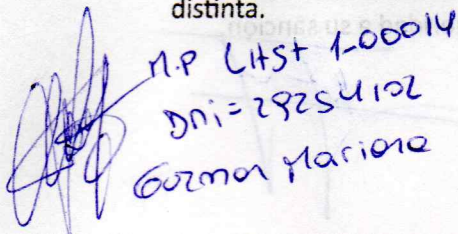 distinta.
M.P LHS+ 1-00014
DNi=29254102
Guzman Mariana